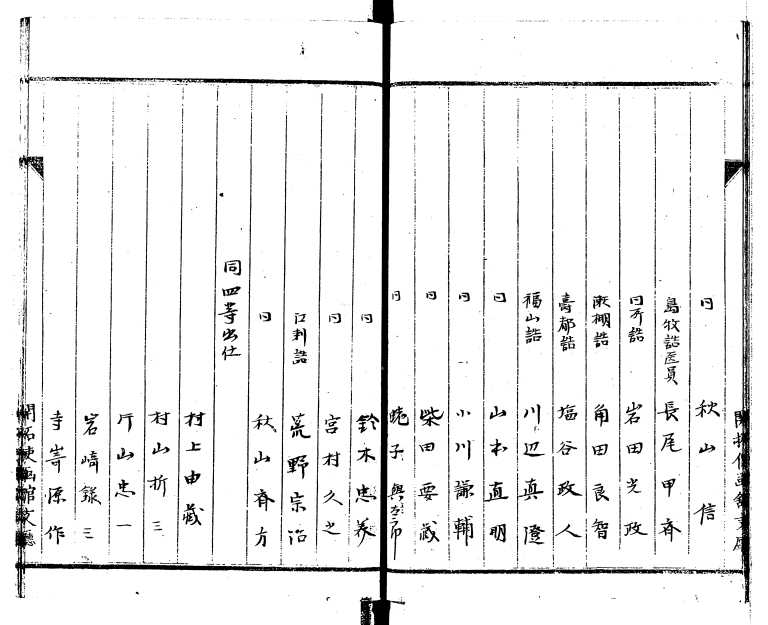 同 秋山信
島牧詰医員 長尾甲斉
同所詰 岩田光政
瀬棚詰 角田良智
壽都詰 塩谷政人
福山詰 川辺真澄
同 山本直明
同 小川謙輔
同 柴田要蔵
同 蛯子與
同 鈴木忠養
同 宮村久之
江刺詰 荒野宗治
同 秋山斉方
同四等出仕
村上由蔵
村山折三
片山忠一
岩﨑録三
寺嵜源作
開拓使函館支廳